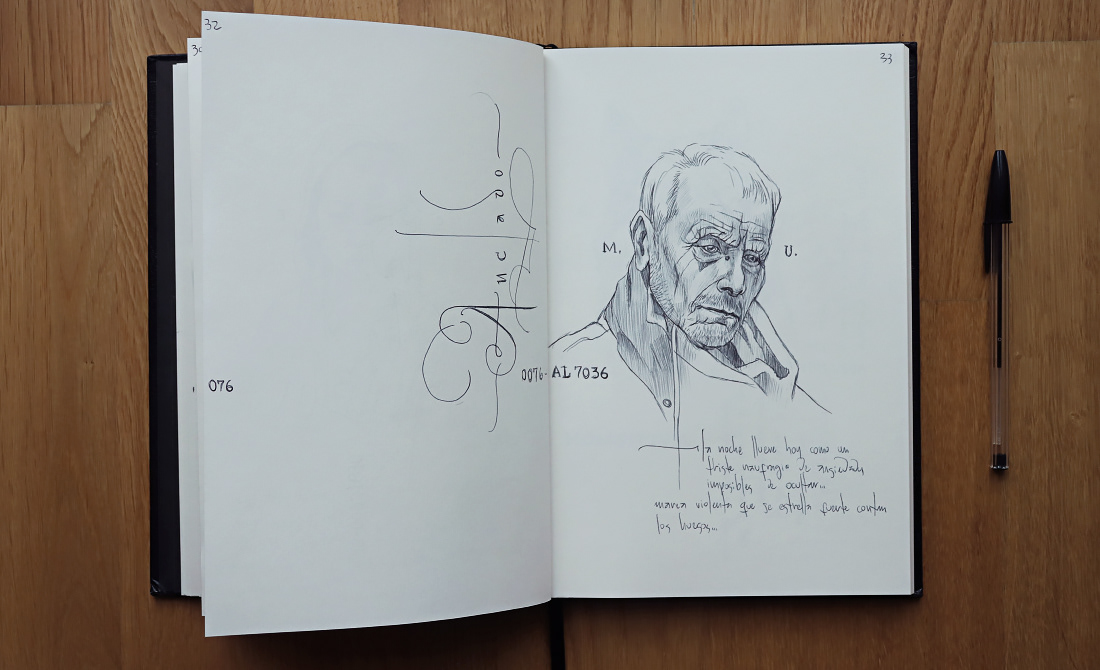 32
30
076
33
M.
U.
0076-AL7036
la noche llueve hoy como un
triste naufragio de ansiedades
imposibles de ocultar...
marea violenta que se estrella fuerte contra
los huesos...